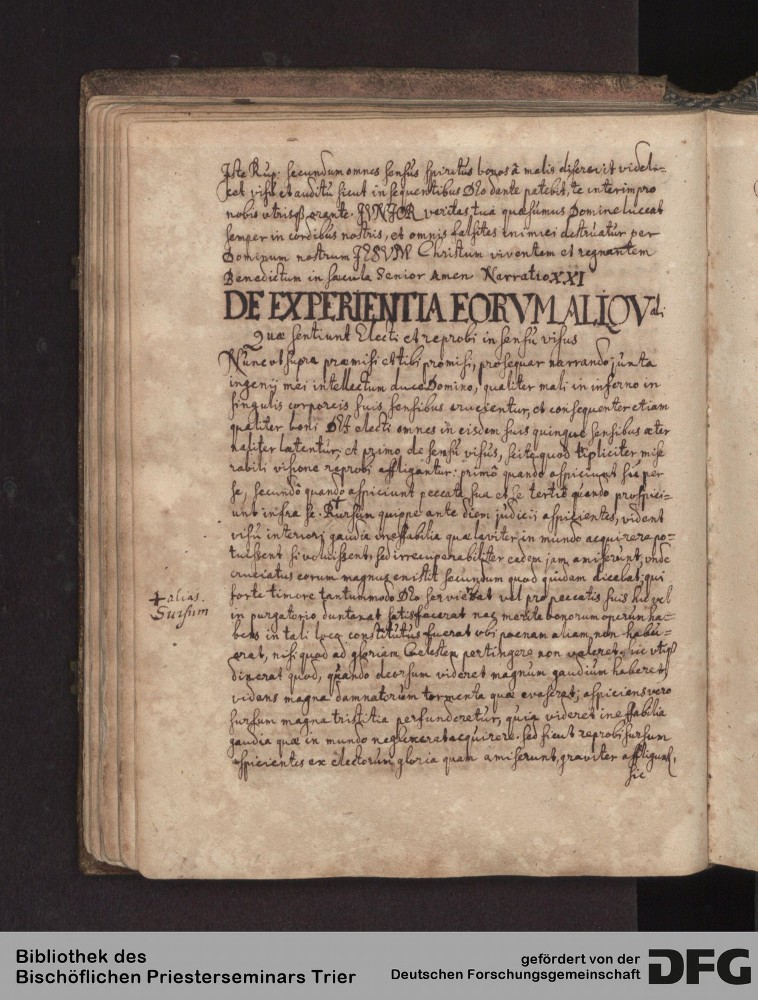 Iste Rup: secundum omnes sensus spiritus bonos à malis discrevit videli=
cet visu et auditu sicut in sequentibus Deo dante patebit, te interim pro
nobis utrisq orante. IVNIOR veritas tua quæsumus Domine luceat
semper in cordibus nostris, et omnis falsitas inimici destruatur per
Dominum nostrum IESVM Christum viventem et regnantem
Benedictum in sæcula Senior Amen Narratio XXI
DE EXPERIENTIA EORVM ALIQVali
Quæ sentiunt Electi et reprobi in sensu visus
Nunc ut supra præmisi et tibi promisi, prosequar narrando juxta
ingenij mei intellectum duce Domino, qualiter mali in inferno in
singulis corporeis suis sensibus crucientur, et consequenter etiam
qualiter boni Dei electi omnes in eisdem suis quinque sensibus æter
naliter lætentur, et primo de sensu visus, scito quod tripliciter mise
rabili visione reprobi affligantur: primò quando aspiciunt sursum per
se, secundò quando aspiciunt peccata sua et se tertiò quando prospici=
unt infra se. Rursum quippe ante diem judicij aspicientes, vident
visu interiori gaudia ineffabilia quæ leviter in mundo acquirere po=
tuissent si voluissent, sed irrecuperabiliter eadem jam amiserunt, unde
cruciatus eorum magnus existit secundum quod quidam dicebat; qui
forte timore tantummodo Deo serviebat vel pro peccatis suis hic vel
in purgatorio duntaxat satisfacerat nec merita bonorum operum ha=
bens in tali loco constitutus fuerat ubi poenam aliam, non habu=
erat, nisi quod ad gloriam Cælestem pertingere non valeret, hic utiq
dixerat quod, quando deorsum videret magnum gaudium haberet,
videns magna damnatorum tormenta quæ evaserat; aspiciens vero
sursum magna tristitia perfunderetur, quia videret ineffabilia
gaudia quæ in mundo neglexerat acquirere. sed sicut reprobi sursum
aspicientes ex electorum gloria quam amiserunt, graviter affligunt,
sic
+ alias.
Sursum
Bibliothek des
Bischöflichen Priesterseminars Trier
gefördert von der
Deutschen Forschungsgemeinschaft
DFG